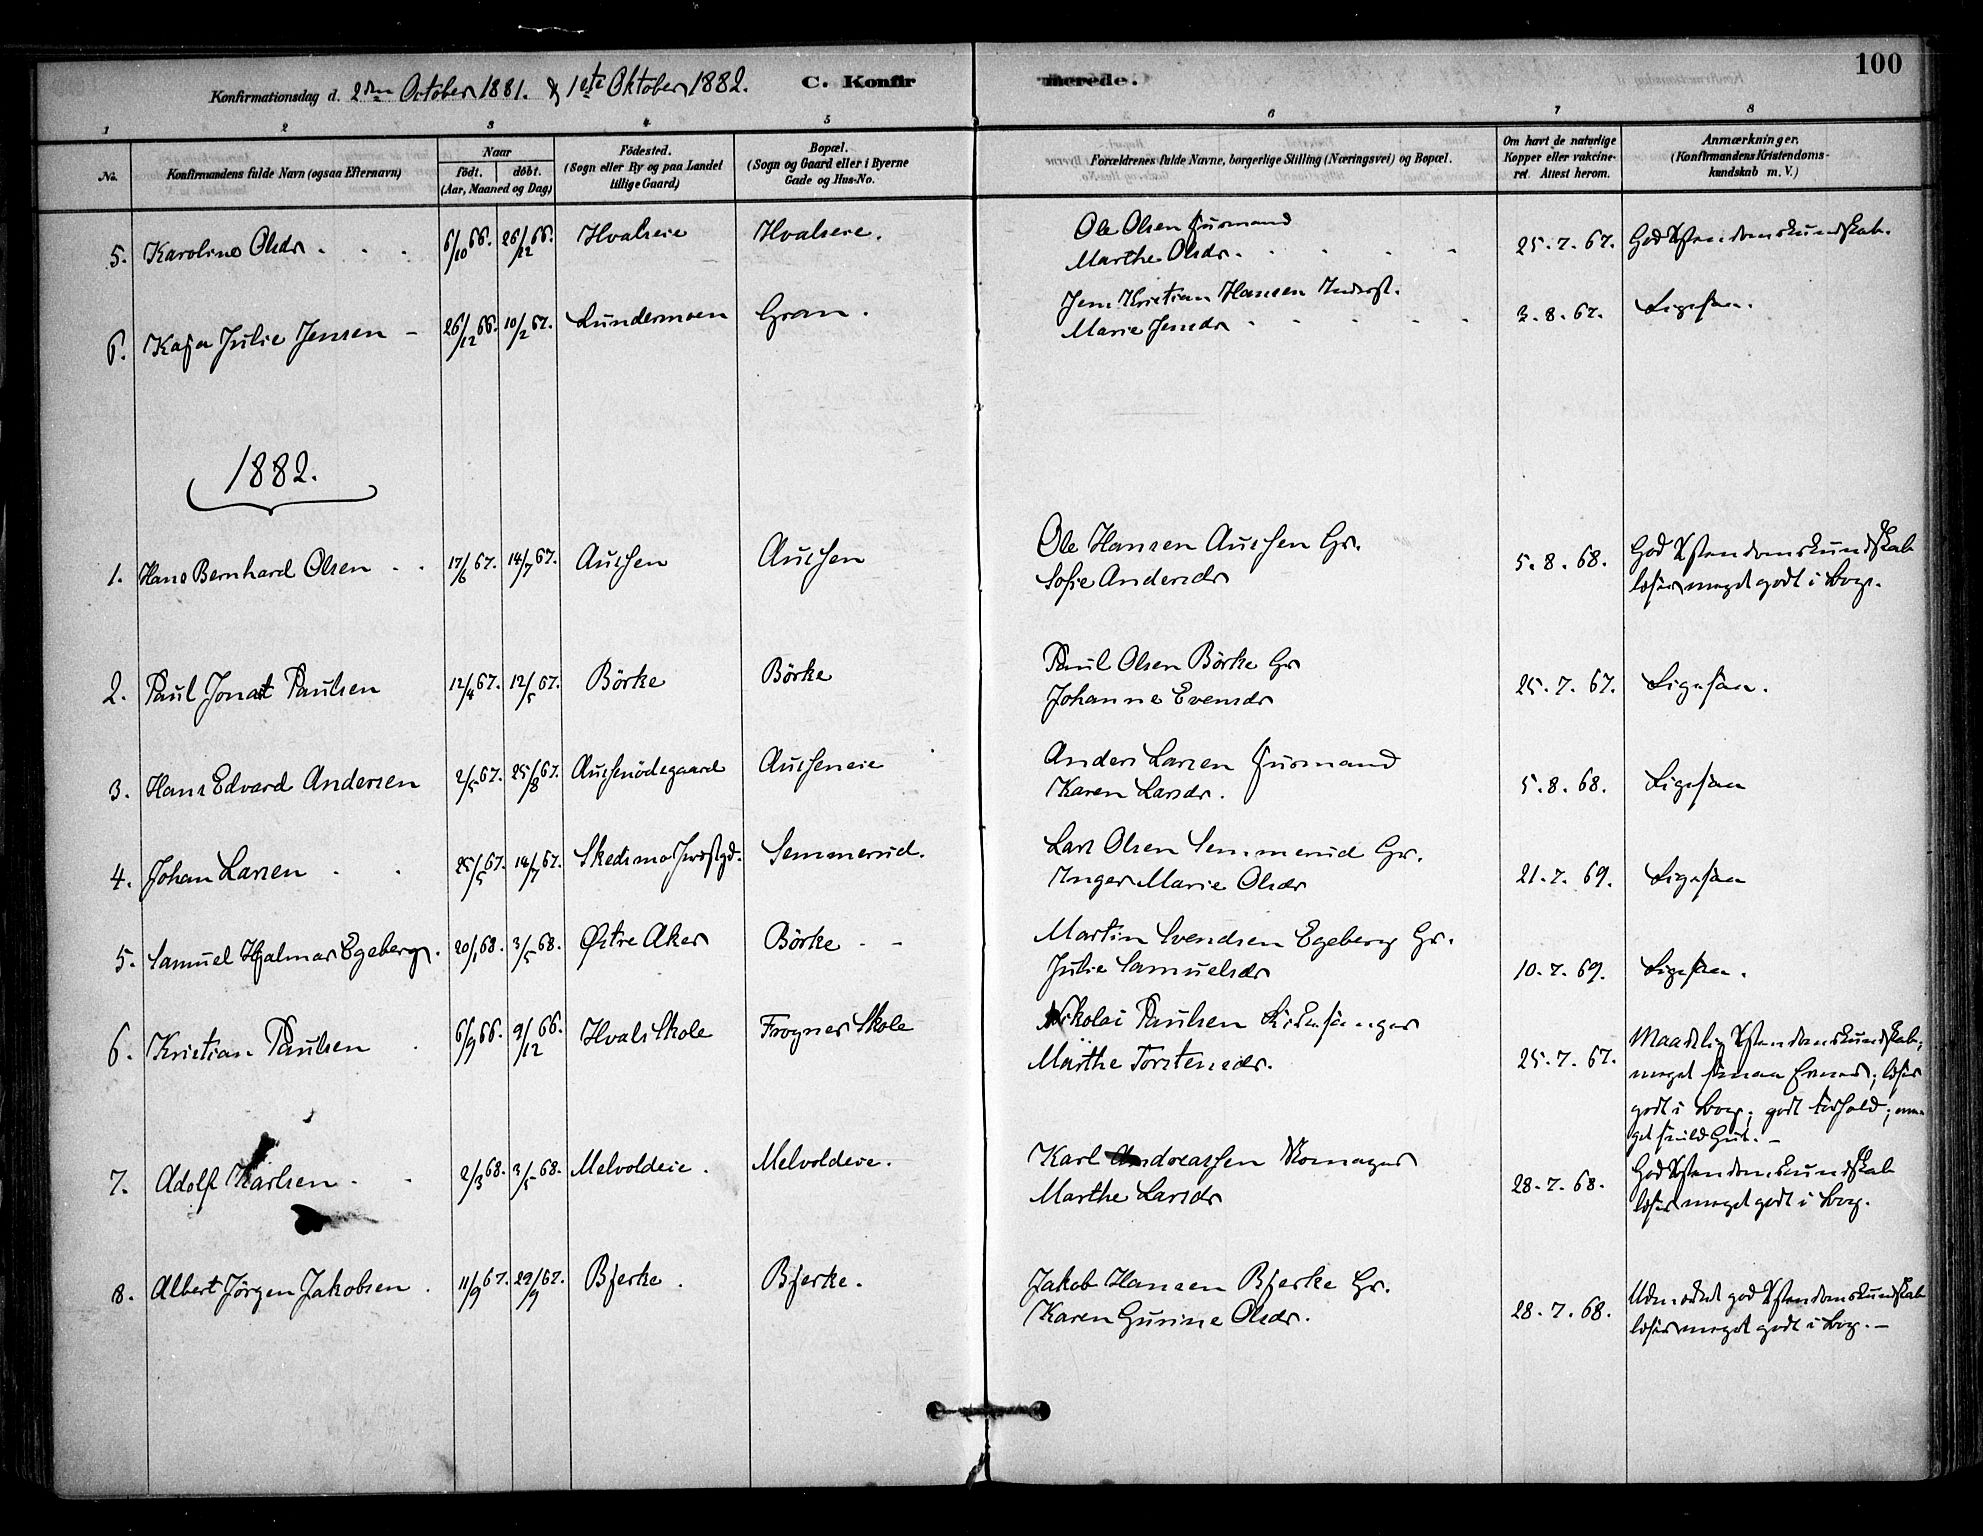 100
Konfirmationsdag d. 2den October 1881. & 1ste Oktober 1882. C. Konfirmerede.
1 2 3 4 5 6 7 8
No. Konfirmandens fulde Navn (ogsaa Efternavn) Naar födt. döbt. (Aar, Maaned og Dag) Födested. (Sogn eller By og paa Landet tillige Gaard) Bopæl. (Sogn og Gaard eller i Byerne Gade og Hus-No. Forældrenes fulde Navne, borgerlige Stilling (Næringsvei) og Bopæl. Om havt de naturlige Kopper eller vakcineret. Attest herom. Anmærkninger. (Konfirmandens Kristendomskundskab m. V.)
5. Karoline Olsdr. 6/10 66. 26/12 66. Hvalseie Hvalseie. Ole Olsen Husmand 25.7.67. God Xstendomskundskab.
Marthe Olsdr.
6. Kaja Julie Jensen - 26/12 66. 10/2 67. Lundermoen Gran. Jens Kristian Hansen Inderst. 3.8.67. Ligesaa.
Marie Jensdr
1882.
1. Hans Bernhard Olsen 17/6 67. 14/7 67. Aulsen Aulsen Ole Hansen Aulsen Gr. 5.8.68. God Xstendomskundskab
Sofie Andersdr læser meget godt i Bog.
2. Paul Jonat Paulsen 12/4 67. 12/5 67. Börke Börke Paul Olsen Börke Gr 25.7.67. Ligesaa.
Johanne Evensdr
3. Hans Edvard Andersen 2/5 67. 25/8 67. Ausenödegaard Aulseneie Anders Larsen Husmand 5.8.68. Ligesaa
Karen Larsdr.
4. Johan Larsen 25/5 67. 14/7 67. Skedsmo Semmerud. Lars Olsen Semmerud Gr. 21.7.69. Ligesaa
Inger Marie Olsdr
5. Samuel Hjalmar Egeberg. 20/1 68. 3/5 68. Østre Aker Börke - - Martin Svendsen Egeberg Gr. 10.7.69. Ligesaa.
Julie Samuelsdr
6. Kristian Paulsen 6/9 66. 9/12 66. Hvals Skole Frogner Skole Nikolai Paulsen Kirkesanger 25.7.67. Maadelig Xstendomskundskab;
Marthe Torstensdr. meget smaa Evner; læser
godt i Bog; godt Forhold; me-
get snild Gut. -
7. Adolf Karlsen 2/3 68. 3/5 68. Melvoldeie. Melvoldeie. Karl Andreassen Skomager 28.7.68. God Xstendomskundskab
Marthe Larsdr læser meget godt i Bog.
8. Albert Jörgen Jakobsen. 11/9 67. 29/9 67. Bjerke. Bjerke. Jakob Hansen Bjerke Gr. 28.7.68. Udmærket god Xstendomskundskab
Karen Gurine Olsdr. læser meget godt i Bog. -